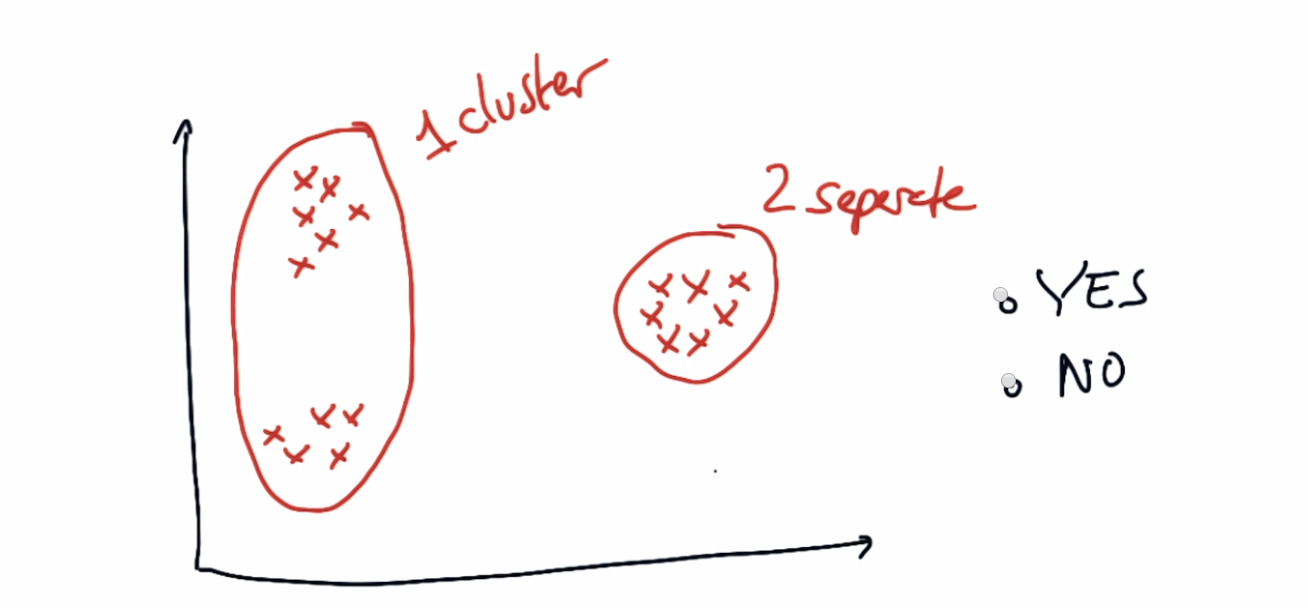 1 cluster
2 separate
YES
NO